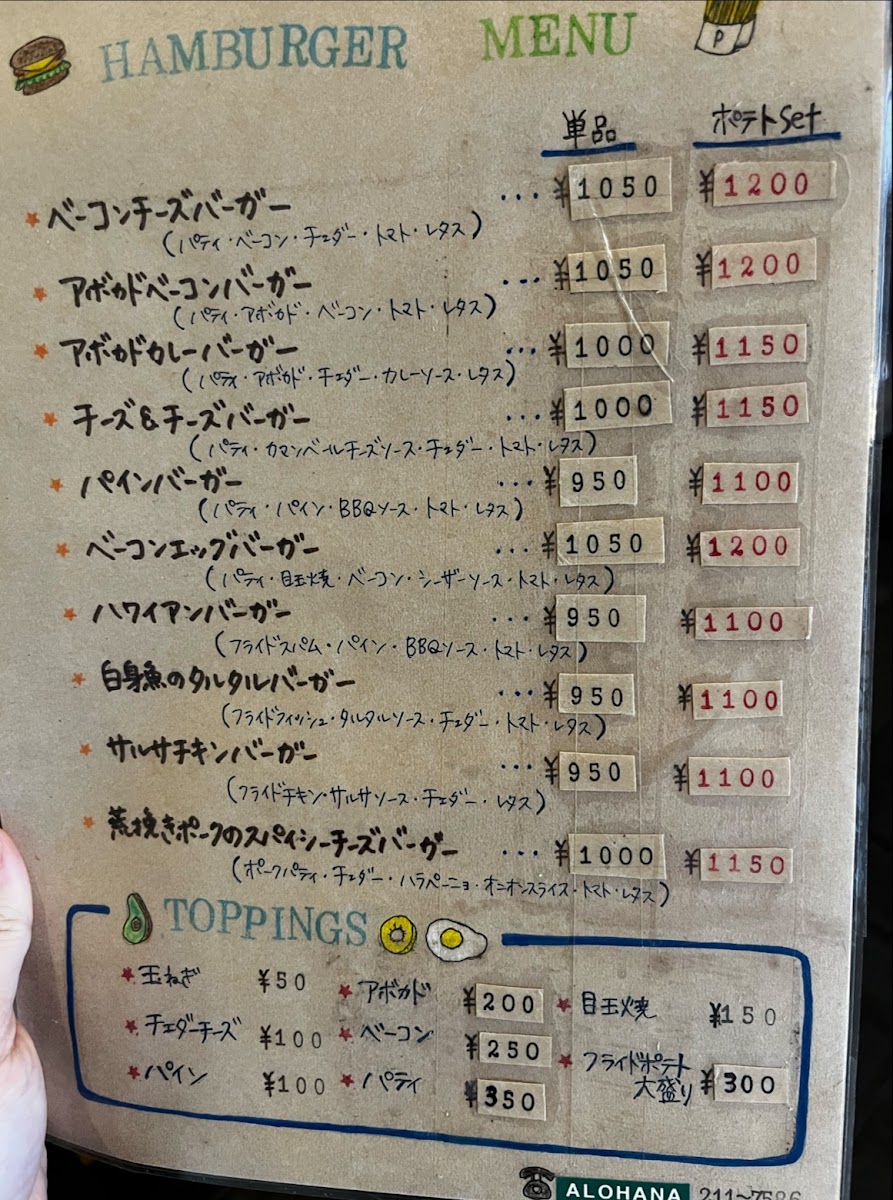 HAMBURGER MENU
P
単品 ポテトSet
ベーコンチーズバーガー ... ¥1050 ¥1200
(パティ・ベーコン・チェダー・トマト・レタス)
アボカドベーコンバーガー ... ¥1050 ¥1200
(パティ・アボカド・ベーコン・トマト・レタス)
アボカドカレーバーガー ... ¥1000 ¥1150
(パティ・アボカド・チェダー・カレーソース・レタス)
チーズ&チーズバーガー ... ¥1000 ¥1150
(パティ・カマンベールチーズソース・チェダー・トマト・レタス)
パインバーガー ... ¥950 ¥1100
(パティ・パイン・BBQソース・トマト・レタス)
ベーコンエッグバーガー ... ¥1050 ¥1200
(パティ・目玉焼・ベーコン・シーザーソース・トマト・レタス)
ハワイアンバーガー ... ¥950 ¥1100
(フライドスパム・パイン・BBQソース・トマト・レタス)
白身魚のタルタルバーガー ... ¥950 ¥1100
(フライドフィッシュ・タルタルソース・チェダー・トマト・レタス)
サルサチキンバーガー ... ¥950 ¥1100
(フライドチキン・サルサソース・チェダー・レタス)
荒挽きポークのスパイシーチーズバーガー ... ¥1000 ¥1150
(ポークパティ・チェダー・ハラペーニョ・オニオンスライス・トマト・レタス)
TOPPINGS
玉ねぎ ¥50 アボカド ¥200 目玉焼 ¥150
チェダーチーズ ¥100 ベーコン ¥250 フライドポテト
大盛り ¥300
パイン ¥100 パティ ¥350
ALOHANA 211-7586